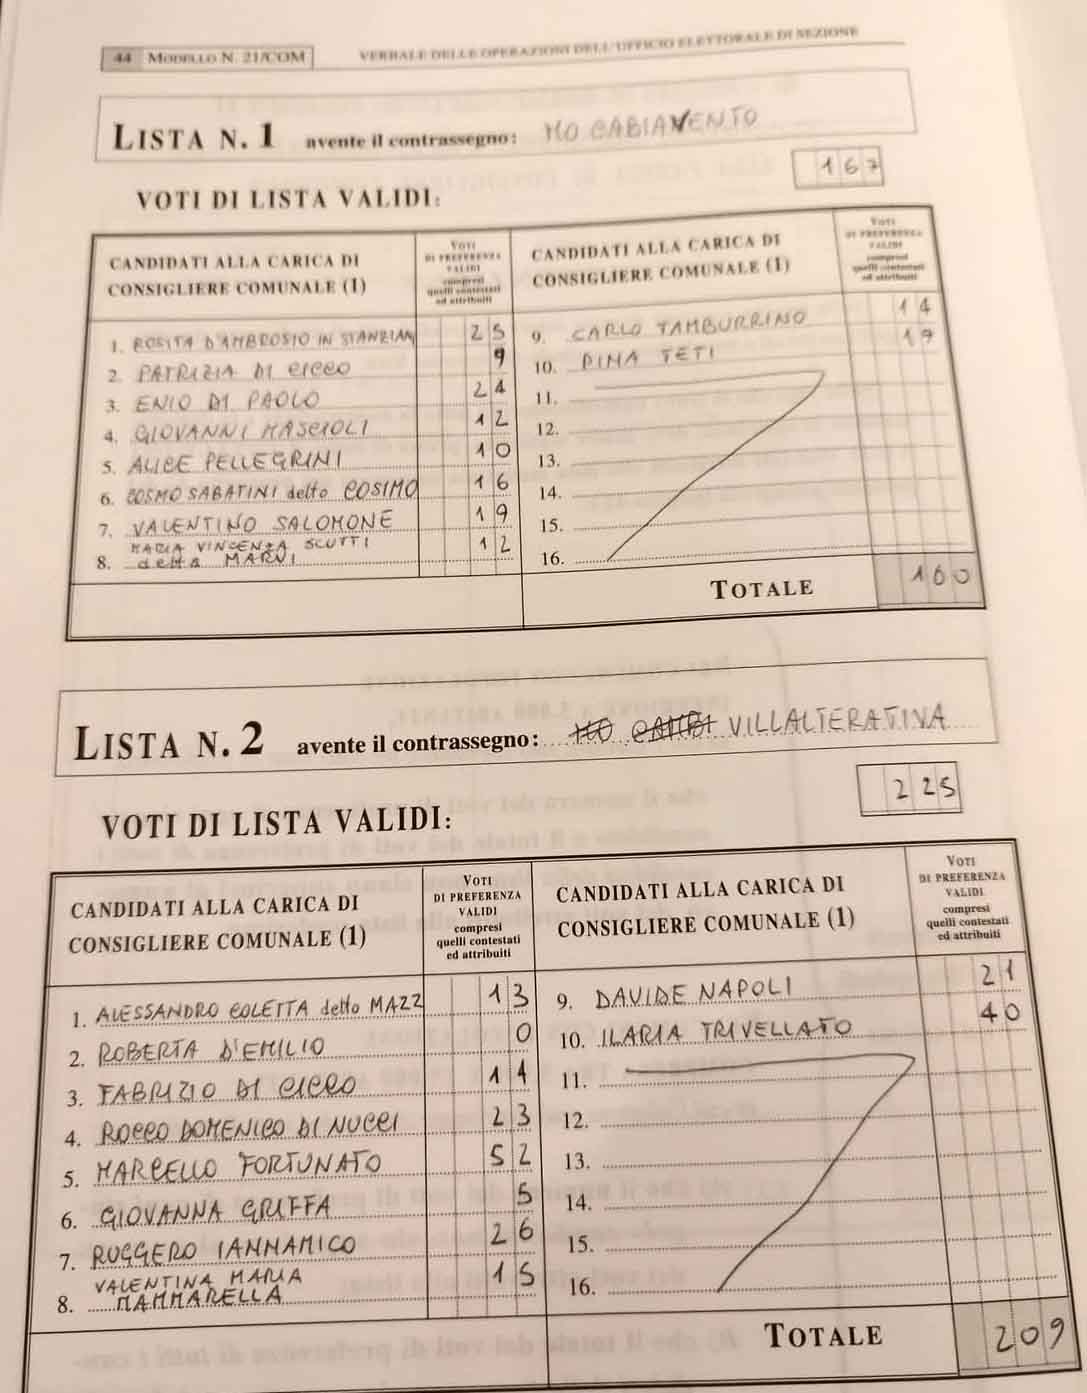 44 MODELLO N. 21/COM VERBALE DELLE OPERAZIONI DELL'UFFICIO ELETTORALE DI SEZIONE
LISTA N. 1 avente il contrassegno: MO CABIAVENTO
VOTI DI LISTA VALIDI: 167
CANDIDATI ALLA CARICA DI CONSIGLIERE COMUNALE (1) VOTI DI PREFERENZA VALIDI compresi quelli contestati ed attribuiti CANDIDATI ALLA CARICA DI CONSIGLIERE COMUNALE (1) VOTI DI PREFERENZA VALIDI compresi quelli contestati ed attribuiti
1. ROSITA D'AMBROSIO IN STANZIAN 25
2. PATRIZIA DI CICCO 9
3. ENIO DI PAOLO 24
4. GIOVANNI MASCIOLI 12
5. ALICE PELLEGRINI 10
6. COSMO SABATINI detto COSIMO 16
7. VALENTINO SALOMONE 19
8. MARIA VINCENZA SCUTTI
detta MARVI 12
9. CARLO TAMBURRINO 14
10. PINA TETI 19
11.
12.
13.
14.
15.
16.
TOTALE 160
LISTA N. 2 avente il contrassegno: VILLALTERATIVA
VOTI DI LISTA VALIDI: 225
CANDIDATI ALLA CARICA DI CONSIGLIERE COMUNALE (1) VOTI DI PREFERENZA VALIDI compresi quelli contestati ed attribuiti CANDIDATI ALLA CARICA DI CONSIGLIERE COMUNALE (1) VOTI DI PREFERENZA VALIDI compresi quelli contestati ed attribuiti
1. ALESSANDRO COLETTA detto MAZZ 13
2. ROBERTA D'EMILIO 0
3. FABRIZIO DI CICCO 14
4. ROCCO DOMENICO DI NUCCI 23
5. MARCELLO FORTUNATO 52
6. GIOVANNA GRIFFA 5
7. RUGGERO IANNAMICO 26
8. VALENTINA MARIA
MAMMARELLA 15
9. DAVIDE NAPOLI 21
10. ILARIA TRIVELLATO 40
11.
12.
13.
14.
15.
16.
TOTALE 209